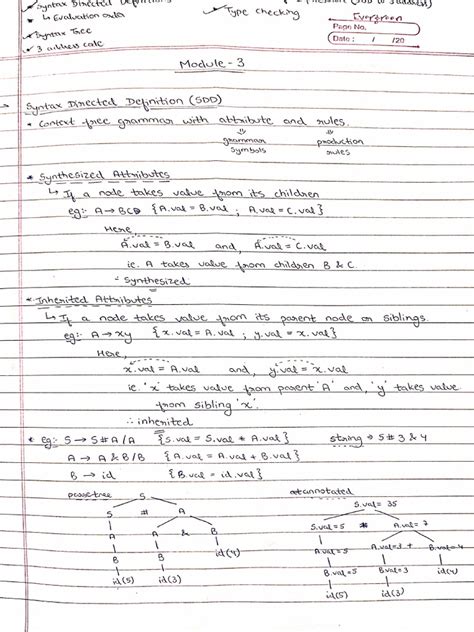 Syntax Directed Definitions
↳ Evaluation orders
Type checking
Syntax Tree
3 address code
Evergreen
Page No.
Date : / /20
Module - 3
Syntax Directed Definition (SDD)
* Context free grammar with attribute and rules.
⇓ ⇓
grammar production
symbols rules
* Synthesized Attributes
↳ If a node takes value from its children
eg:- A → BCD {A.val = B.val ; A.val = C.val}
Here
A.val = B.val and, A.val = C.val
ie. A takes value from children B & C.
∴ Synthesized
* Inherited Attributes
↳ If a node takes value from its parent node or siblings.
eg:- A → xy {x.val = A.val ; y.val = x.val}
Here,
x.val = A.val and, y.val = x.val
ie. 'x' takes value from parent 'A' and, 'y' takes value
from sibling 'x'.
∴ inherited
* eg:- S → S # A / A {S.val = S.val * A.val} string ⇒ 5 # 3 & 4
A → A & B / B {A.val = A.val + B.val}
B → id {B.val = id.val}
parse tree S annotated S.val = 35
S # A S.val = 5 * A.val = 7
A A & B A.val = 5 A.val = 3 + B.val = 4
B B id(4) B.val = 5 B.val = 3 id(4)
id(5) id(3) id(5) id(3)